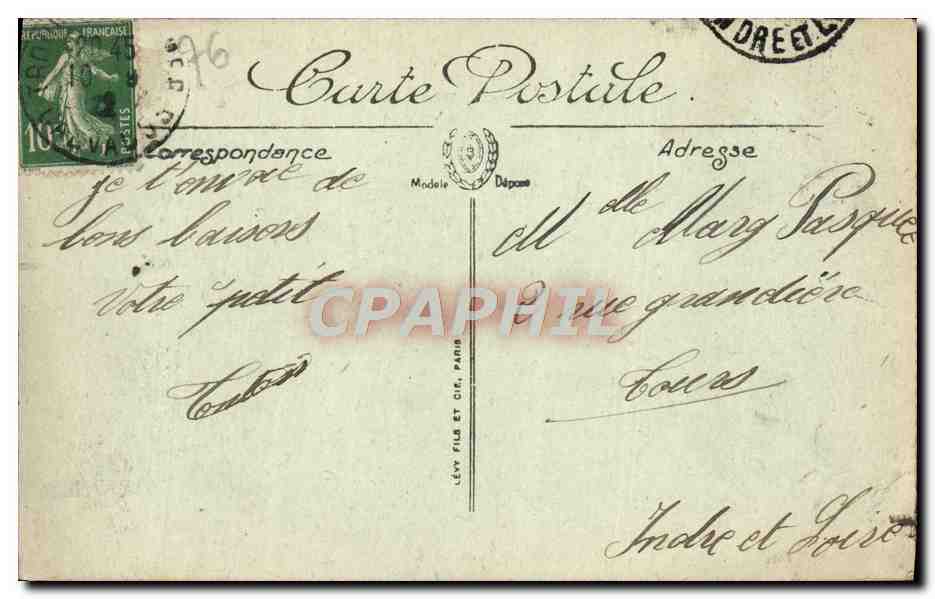 RÉPUBLIQUE FRANÇAISE
10
POSTES
76
DRE ET
Carte Postale.
Correspondance
Adresse
Modèle Déposé
je t'envoie de
bons baisers
votre petit
Mlle Marg Pasquée
2 rue grandière
Tours
Indre et Loire
LÉVY FILS ET CIE, PARIS
CPAPHIL